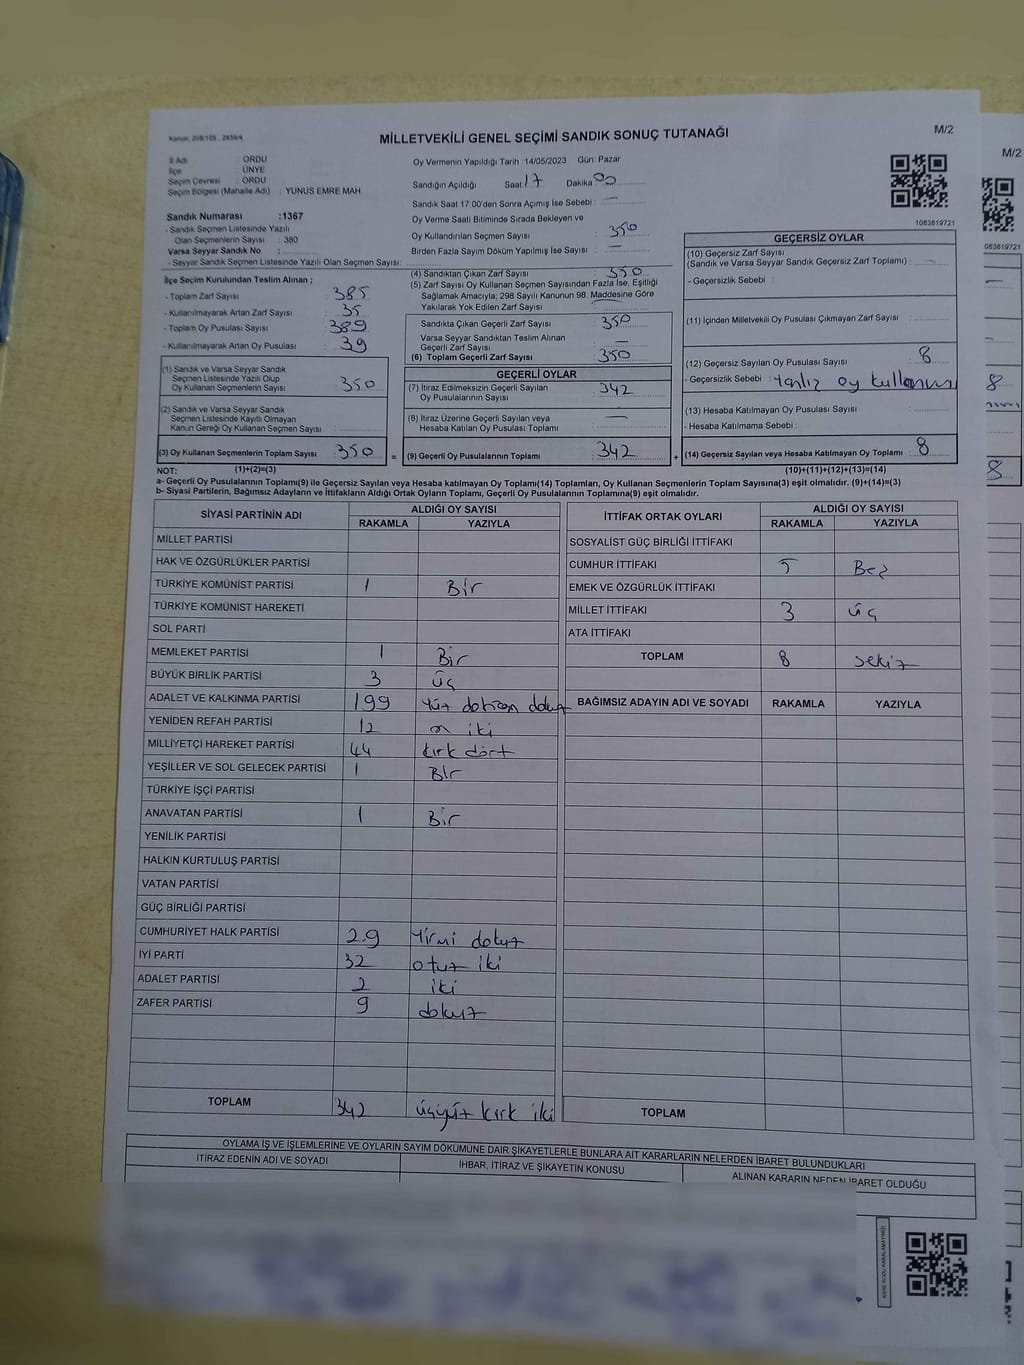 MİLLETVEKİLİ GENEL SEÇİMİ SANDIK SONUÇ TUTANAĞI
M/2
İl Adı : ORDU
İlçe : ÜNYE
Seçim Çevresi : ORDU
Seçim Bölgesi (Mahalle Adı) : YUNUS EMRE MAH
Sandık Numarası :1367
- Sandık Seçmen Listesinde Yazılı
Olan Seçmenlerin Sayısı : 380
Varsa Seyyar Sandık No :
- Seyyar Sandık Seçmen Listesinde Yazılı Olan Seçmen Sayısı:
İlçe Seçim Kurulundan Teslim Alınan ;
- Toplam Zarf Sayısı : 385
- Kullanılmayarak Artan Zarf Sayısı : 35
- Toplam Oy Pusulası Sayısı : 389
- Kullanılmayarak Artan Oy Pusulası : 39
(1) Sandık ve Varsa Seyyar Sandık
Seçmen Listesinde Yazılı Olup
Oy Kullanan Seçmenlerin Sayısı : 350
(2) Sandık ve Varsa Seyyar Sandık
Seçmen Listesinde Kayıtlı Olmayan
Kanun Gereği Oy Kullanan Seçmen Sayısı :
(3) Oy Kullanan Seçmenlerin Toplam Sayısı : 350
Oy Vermenin Yapıldığı Tarih : 14/05/2023 Gün: Pazar
Sandığın Açıldığı Saat: 17 Dakika: 00
Sandık Saat 17:00'den Sonra Açılmış İse Sebebi : —
Oy Verme Saati Bitiminde Sırada Bekleyen ve
Oy Kullandırılan Seçmen Sayısı : 350
Birden Fazla Sayım Döküm Yapılmış İse Sayısı : —
(4) Sandıktan Çıkan Zarf Sayısı : 350
(5) Zarf Sayısı Oy Kullanan Seçmen Sayısından Fazla İse, Eşitliği
Sağlamak Amacıyla, 298 Sayılı Kanunun 98. Maddesine Göre
Yakılarak Yok Edilen Zarf Sayısı : —
Sandıkta Çıkan Geçerli Zarf Sayısı : 350
Varsa Seyyar Sandıktan Teslim Alınan
Geçerli Zarf Sayısı : —
(6) Toplam Geçerli Zarf Sayısı : 350
GEÇERLİ OYLAR
(7) İtiraz Edilmeksizin Geçerli Sayılan
Oy Pusulalarının Sayısı : 342
(8) İtiraz Üzerine Geçerli Sayılan veya
Hesaba Katılan Oy Pusulası Toplamı : —
= (9) Geçerli Oy Pusulalarının Toplamı : 342
1083619721
GEÇERSİZ OYLAR
(10) Geçersiz Zarf Sayısı
(Sandık ve Varsa Seyyar Sandık Geçersiz Zarf Toplamı) : —
- Geçersizlik Sebebi :
(11) İçinden Milletvekili Oy Pusulası Çıkmayan Zarf Sayısı :
(12) Geçersiz Sayılan Oy Pusulası Sayısı : 8
- Geçersizlik Sebebi : oy
(13) Hesaba Katılmayan Oy Pusulası Sayısı :
- Hesaba Katılmama Sebebi :
+ (14) Geçersiz Sayılan veya Hesaba Katılmayan Oy Toplamı : 8
NOT: (1)+(2)=(3) (10)+(11)+(12)+(13)=(14)
a- Geçerli Oy Pusulalarının Toplamı(9) ile Geçersiz Sayılan veya Hesaba Katılmayan Oy Toplamı(14) Toplamları, Oy Kullanan Seçmenlerin Toplam Sayısına(3) eşit olmalıdır. (9)+(14)=(3)
b- Siyasi Partilerin, Bağımsız Adayların ve İttifakların Aldığı Ortak Oyların Toplamı, Geçerli Oy Pusulalarının Toplamına(9) eşit olmalıdır.
SİYASİ PARTİNİN ADI ALDIĞI OY SAYISI
RAKAMLA YAZIYLA
MİLLET PARTİSİ
HAK VE ÖZGÜRLÜKLER PARTİSİ
TÜRKİYE KOMÜNİST PARTİSİ 1 Bir
TÜRKİYE KOMÜNİST HAREKETİ
SOL PARTİ
MEMLEKET PARTİSİ 1 Bir
BÜYÜK BİRLİK PARTİSİ 3 üç
ADALET VE KALKINMA PARTİSİ 199 Yüz doksan dokuz
YENİDEN REFAH PARTİSİ 12 on iki
MİLLİYETÇİ HAREKET PARTİSİ 44 kırk dört
YEŞİLLER VE SOL GELECEK PARTİSİ 1 Bir
TÜRKİYE İŞÇİ PARTİSİ
ANAVATAN PARTİSİ 1 Bir
YENİLİK PARTİSİ
HALKIN KURTULUŞ PARTİSİ
VATAN PARTİSİ
GÜÇ BİRLİĞİ PARTİSİ
CUMHURİYET HALK PARTİSİ 29 Yirmi dokuz
İYİ PARTİ 32 otuz iki
ADALET PARTİSİ 2 iki
ZAFER PARTİSİ 9 dokuz
TOPLAM 342 üçyüz kırk iki
İTTİFAK ORTAK OYLARI ALDIĞI OY SAYISI
RAKAMLA YAZIYLA
SOSYALİST GÜÇ BİRLİĞİ İTTİFAKI
CUMHUR İTTİFAKI 5 Beş
EMEK VE ÖZGÜRLÜK İTTİFAKI
MİLLET İTTİFAKI 3 üç
ATA İTTİFAKI
TOPLAM 8 sekiz
BAĞIMSIZ ADAYIN ADI VE SOYADI RAKAMLA YAZIYLA
TOPLAM
OYLAMA İŞ VE İŞLEMLERİNE VE OYLARIN SAYIM DÖKÜMÜNE DAİR ŞİKAYETLERLE BUNLARA AİT KARARLARIN NELERDEN İBARET BULUNDUKLARI
İTİRAZ EDENİN ADI VE SOYADI
İHBAR, İTİRAZ VE ŞİKAYETİN KONUSU
ALINAN KARARIN NEDEN İBARET OLDUĞU
M/2
8
8